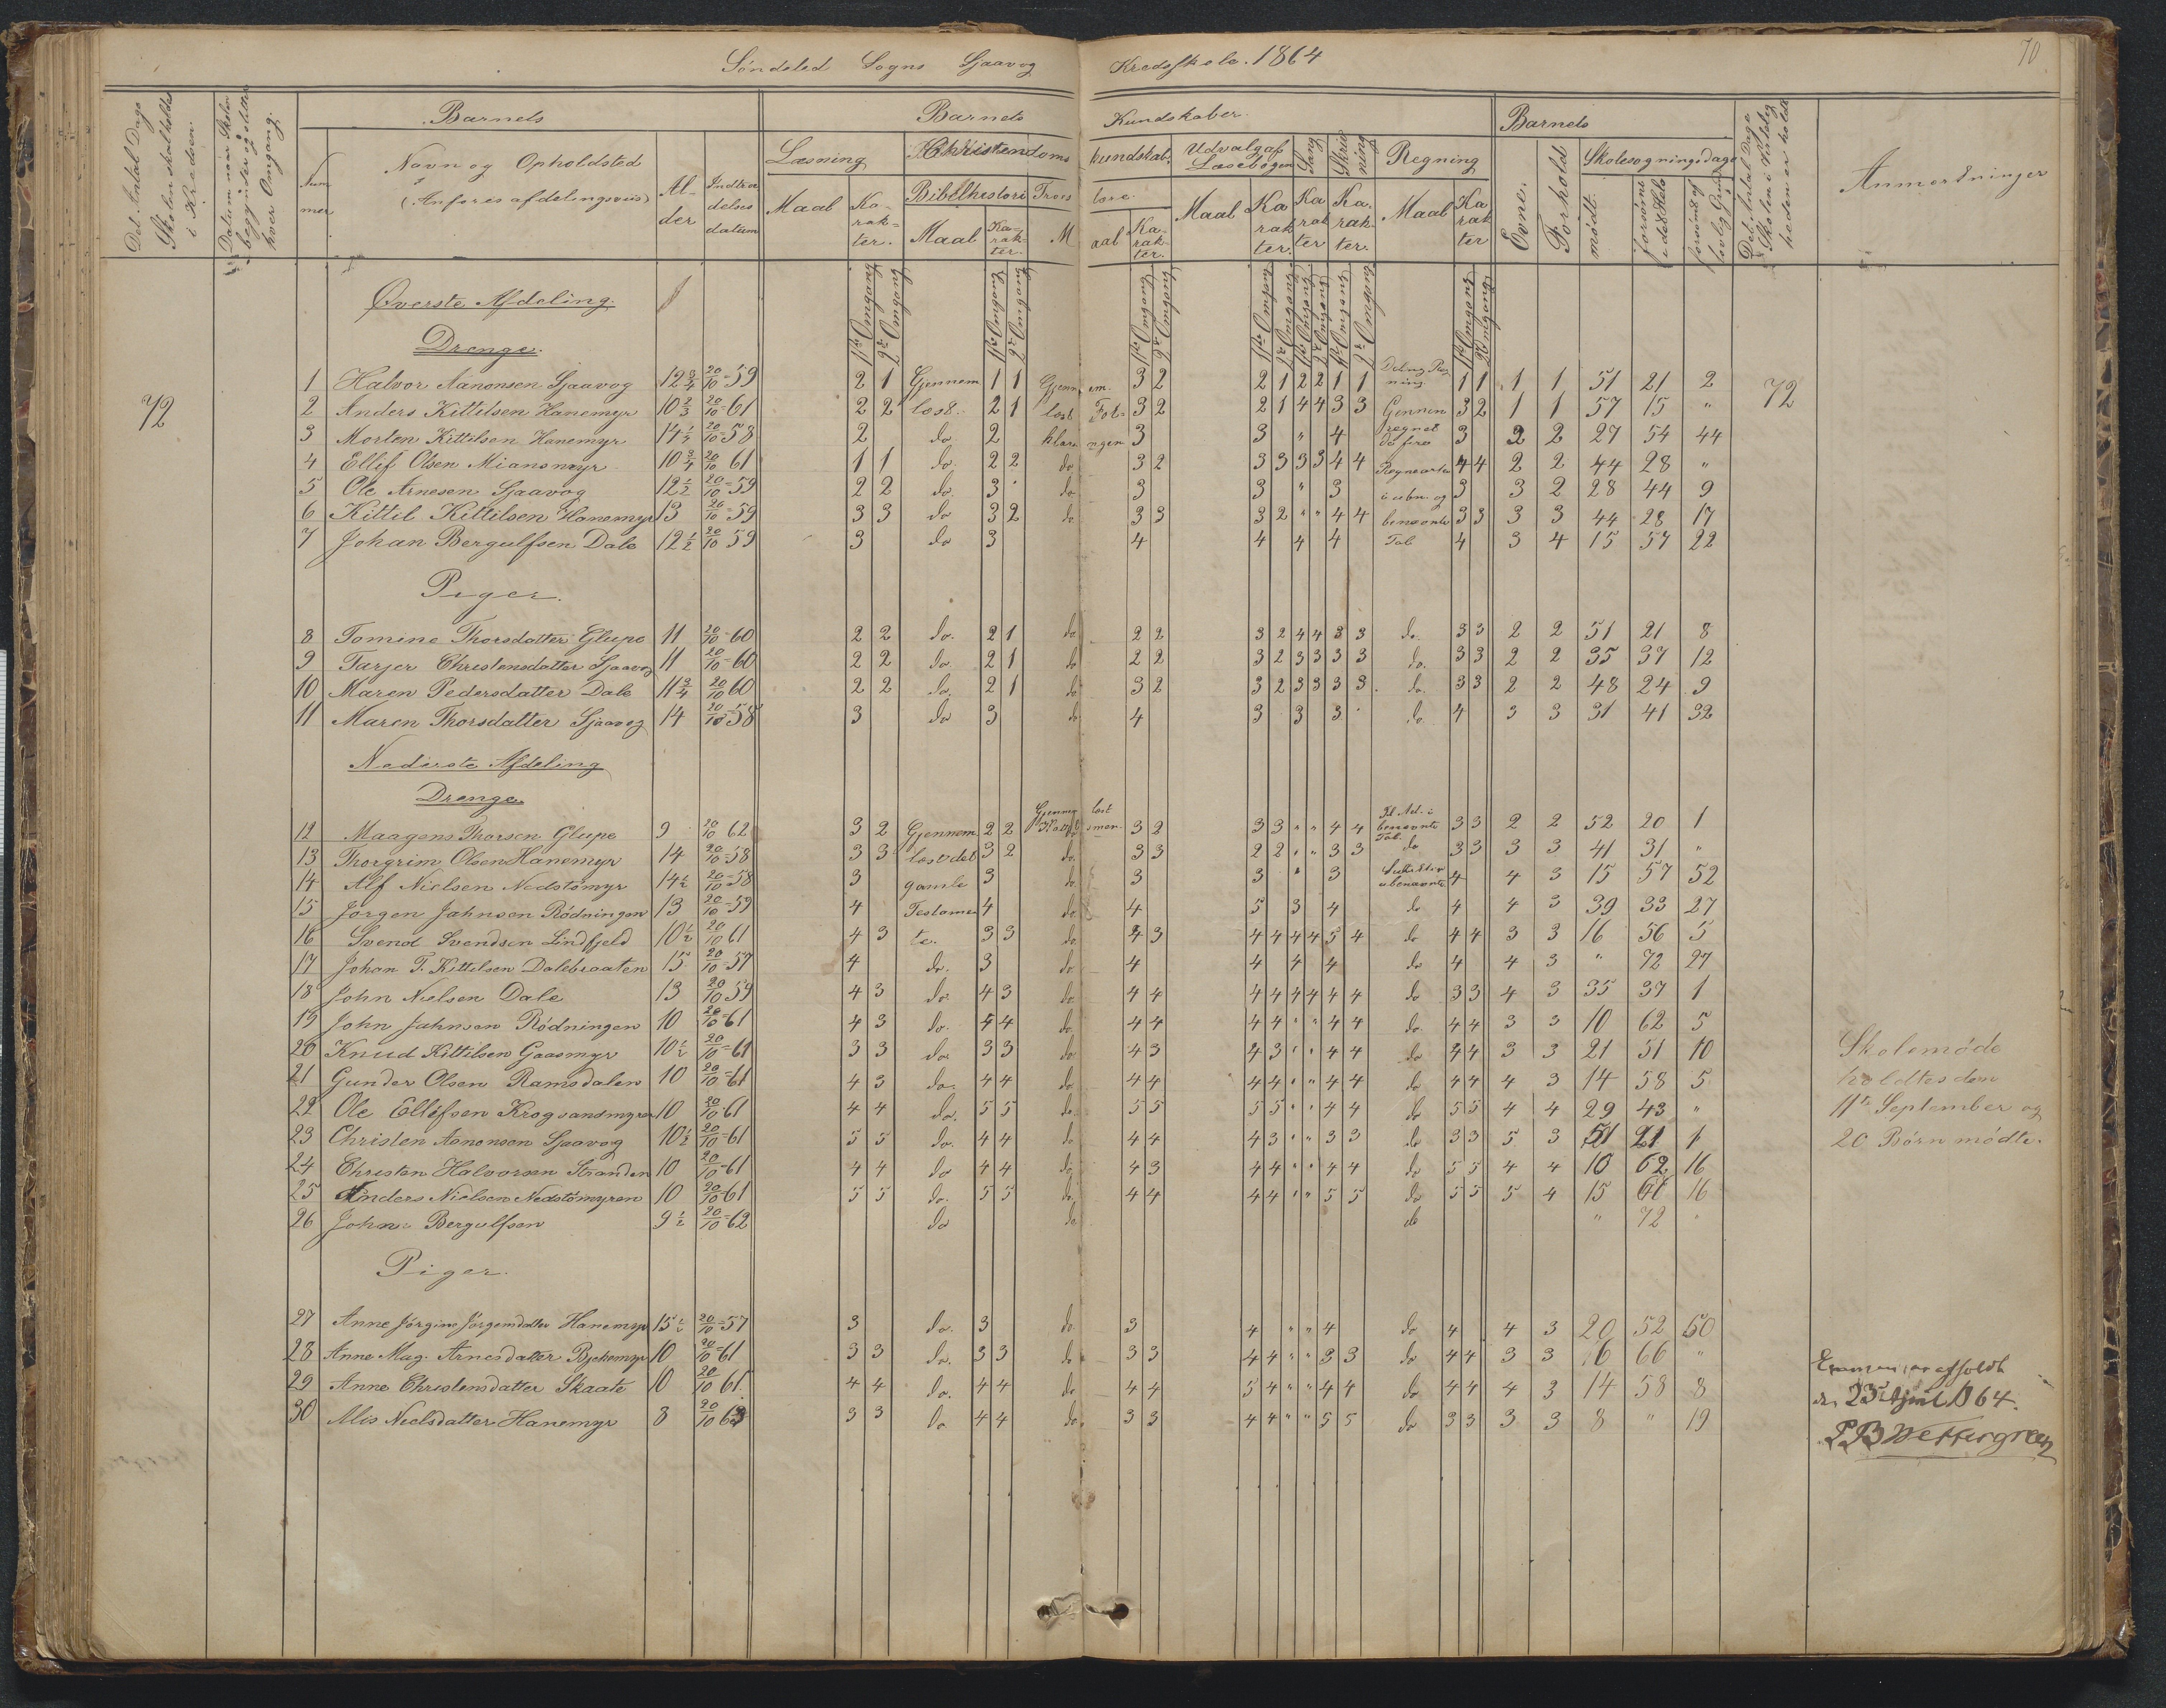 Søndeled Sogns Sjaavog Kredsskole. 1864
70
Det Antal Dage Skolen skal holdes i Kredsen.
Datum naar Skolen begynder og slutter hver Omgang.
Barnets
Barnets Kundskaber.
Barnets
Det Antal Dage Skolen i Virkelig heden er holdt
Anmærkninger
Num mer
Navn og Opholdsted
(Anføres afdelingsviis)
Al- der
Indtræ delses datum
Læsning
Christendoms kundskab.
Udvalg af Læsebogen
Sang
Skriv ning
Regning
Evne.
Forhold
Skolesøgningsdage
Bibelhistori
Troes lære.
Maal
Ka- rak- ter.
mødt.
forsømt i det Hele
forsømt af lovlig Grund
1ste Omgang 2den Omgang
Øverste Afdeling.
Drenge.
72
1 Halvor Aanonsen Sjaavog 12 3/4 20/10 - 59 2 1 Gjennem 1 1 Gjenn em. 3 2 2 1 2 2 1 1 Deling Reg ning. 1 1 1 1 51 21 2 72
2 Anders Kittilsen Hanemyr 10 2/3 20/10 - 61 2 2 læst. 2 1 læst For- 3 2 2 1 4 4 3 3 Gjennem 3 2 1 1 57 15 "
3 Morten Kittilsen Hanemyr 14 1/2 20/10 - 58 2 do 2 klari ngen 3 3 " 4 regnet de fire 3 2 2 27 54 44
4 Ellif Olsen Miansmyr 10 3/4 20/10 61 1 1 do. 2 2 do 3 2 3 3 3 3 4 4 Regnearter 4 4 2 2 44 28 "
5 Ole Arnesen Sjaavog 12 1/2 20/10 - 59 2 2 do. 3 do 3 3 " 3 i ubn. og 3 3 2 28 44 9
6 Kittil Kittilsen Hanemyr 13 20/10 - 59 3 3 do 3 2 do 3 3 3 2 " " 4 4 benævnte 3 3 3 3 44 28 17
7 Johan Bergulfsen Dale 12 1/2 20/10 59 3 do 3 4 4 4 4 Tal 4 3 4 15 57 22
Piger.
8 Tomine Thorsdatter Glupe 11 20/10 - 60 2 2 do. 2 1 do 2 2 3 2 4 4 3 3 do. 3 3 2 2 51 21 8
9 Tarjer Christensdatter Sjaavog 11 20/10 - 60 2 2 do 2 1 do 2 2 3 2 3 3 3 3 do. 3 3 2 2 35 37 12
10 Maren Pedersdatter Dale 11 3/4 20/10 60 2 2 do. 2 1 do 3 2 3 2 3 3 3 3 do. 3 3 2 2 48 24 9
11 Maren Thorsdatter Sjaavog 14 20/10 - 58 3 do 3 do 4 3 3 3 do 4 3 3 31 41 32
Nederste Afdeling
Drenge
12 Maagens Thorsen Glupe 9 20/10 62 3 2 Gjennem 2 2 3 2 3 3 " " 4 4 benævnte Tal. 3 3 2 2 52 20 1
13 Thorgrim Olsen Hanemyr 14 20/10 - 58 3 3 læst det 3 2 do. 3 3 2 2 " " 3 3 do 3 3 3 3 41 31 "
14 Alf Nielsen Nedstömyr 14 1/2 20/10 - 58 3 gamle 3 do 3 3 " 3 ubenævnte 4 4 3 15 57 52
15 Jørgen Jahnsen Rödningen 13 20/10 - 59 4 Testamen 4 do 4 5 3 4 do 4 4 3 39 33 27
16 Svend Svendsen Lindfjeld 10 1/2 20/10 61 4 3 te. 3 3 do. 4 3 4 4 4 4 5 4 do 4 4 3 3 16 56 5
17 Johan T. Kittelsen Dalebraaten 15 20/10 - 57 4 do. 3 do. 4 4 4 4 do 4 4 3 " 72 27
18 John Nielsen Dale 13 20/10 59 4 3 do. 4 3 do. 4 4 4 4 4 4 4 4 do 3 3 4 3 35 37 1
19 John Jahnsen Rödningen 10 20/10 - 61 4 3 do. 4 4 do. 4 4 4 4 " " 4 4 do. 4 4 3 3 10 62 5
20 Knud Kittilsen Gaasmyr 10 1/2 20/10 - 61 3 3 do. 3 3 do. 4 3 4 3 " " 4 4 do 4 4 3 3 21 51 10
21 Gunder Olsen Ramsdalen 10 20/10 - 61 4 3 do. 4 4 do. 4 4 4 4 " " 4 4 do 4 4 4 3 14 58 5
22 Ole Ellefsen Krogvansmyren 10 20/10 - 61 4 4 do. 5 5 do. 5 5 5 5 " " 4 4 do 5 5 4 4 29 43 "
23 Christen Aanonsen Sjaavog 10 1/2 20/10 - 61 5 5 do. 4 4 do 4 4 4 3 " " 3 3 do 3 3 5 3 51 21 1
24 Christen Halvorsen Stranden 10 20/10 - 61 4 4 do 4 4 do. 4 3 4 4 " " 4 4 do 5 5 4 4 10 62 16
25 Anders Nielsen Nedstömyren 10 20/10 - 61 5 5 do. 5 5 do. 4 4 4 4 " " 5 5 do 5 5 5 4 15 16
26 John Bergulfsen 9 1/2 20/10 - 62 do do do " 72 "
Skolemøde
holdtes den
11te September og
20 Börn mödte.
Piger.
27 Anne Jørgine Jörgensdatter Hanemyr 15 1/2 20/10 - 57 3 do. 3 do. 3 4 " " 4 do 4 4 3 20 52 50
28 Anne Mag. Arnesdatter 10 20/10 - 61 3 3 do. 3 3 do 3 3 4 4 " " 3 3 do 4 4 3 3 6 66 "
29 Anne Christensdatter Skaate 10 20/10 61 4 4 do. 4 4 do 4 4 5 4 " " 4 4 do 4 4 4 3 14 58 8
30 Alis Nielsdatter Hanemyr 8 20/10 63 3 3 do 4 4 do. 3 3 4 4 " " 5 5 do 3 3 3 3 8 " 19
Examen er afholdt
den 23 April 1864.
P B Wettergreen